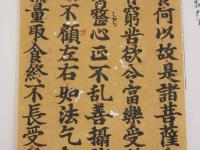 何以故是諸菩薩
窮苦欲令富樂受
心正不乱善攝
不顧左右如法乞
量取食終不長受